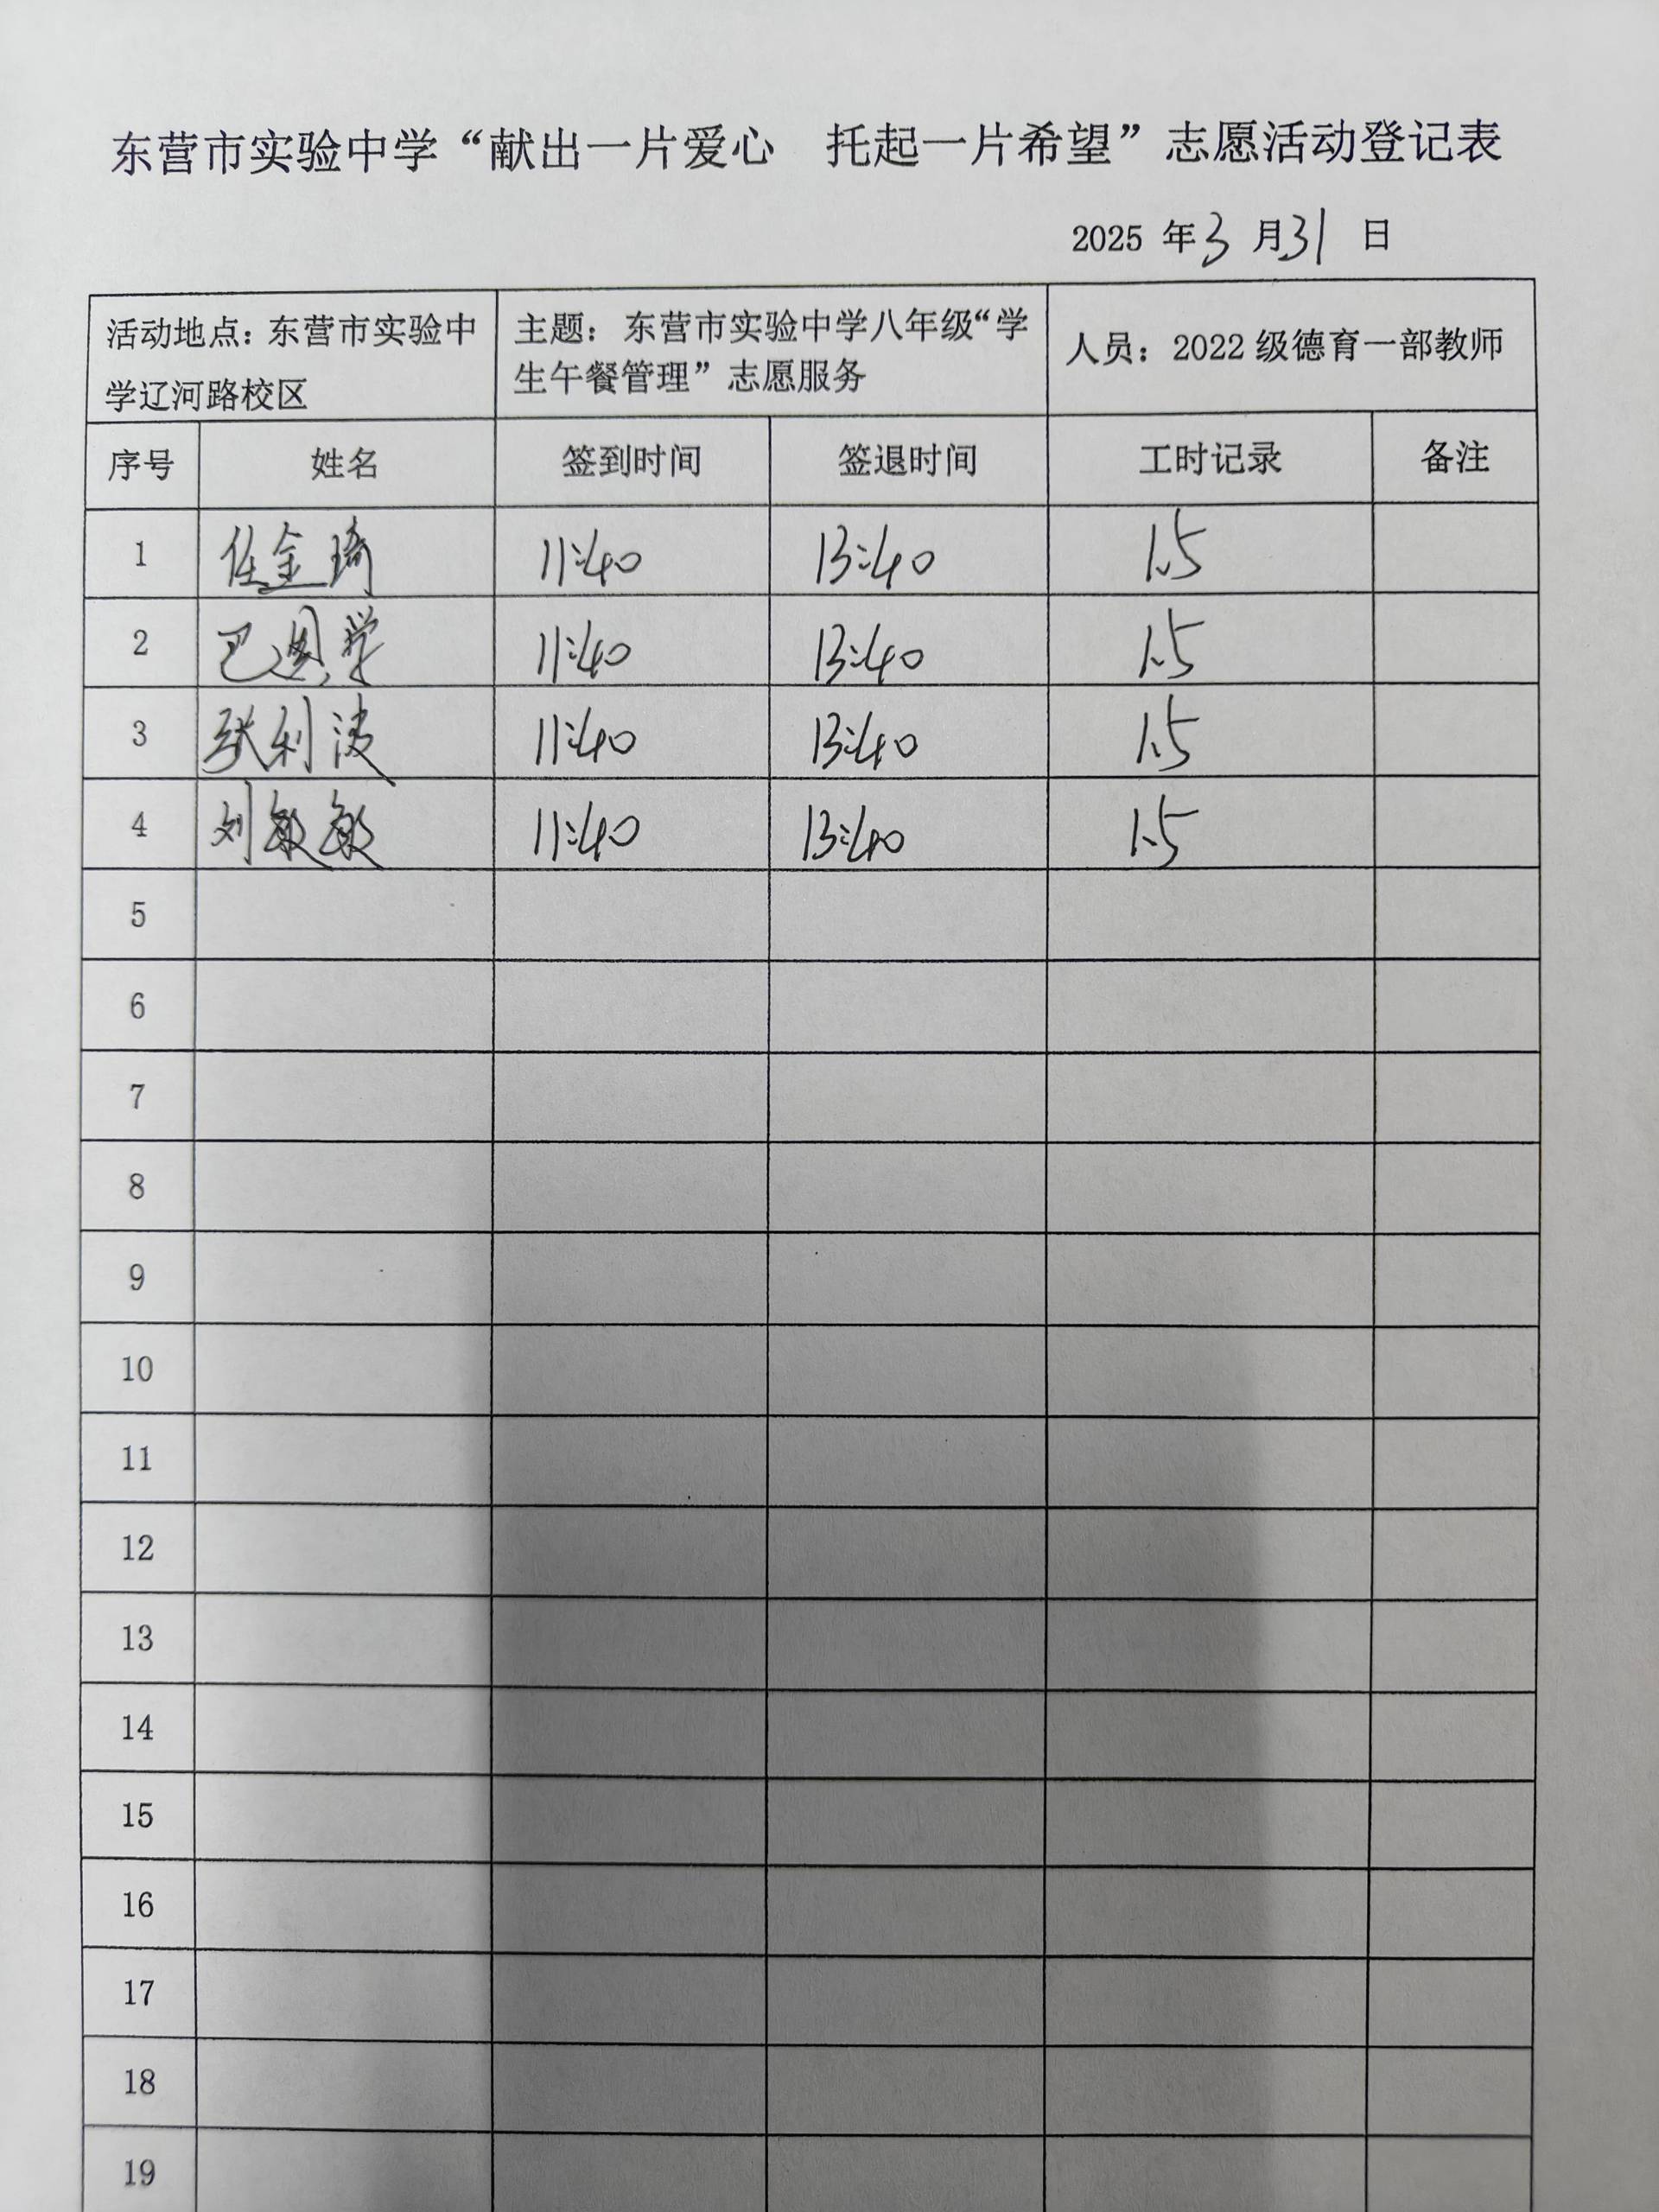 东营市实验中学“献出一片爱心 托起一片希望”志愿活动登记表
2025 年 3 月 31 日
活动地点：东营市实验中
学辽河路校区
主题：东营市实验中学八年级“学
生午餐管理”志愿服务
人员：2022 级德育一部教师
序号 姓名 签到时间 签退时间 工时记录 备注
1 任金琦 11:40 13:40 1.5
2 巴 学 11:40 13:40 1.5
3 张利波 11:40 13:40 1.5
4 刘敏敏 11:40 13:40 1.5
5
6
7
8
9
10
11
12
13
14
15
16
17
18
19